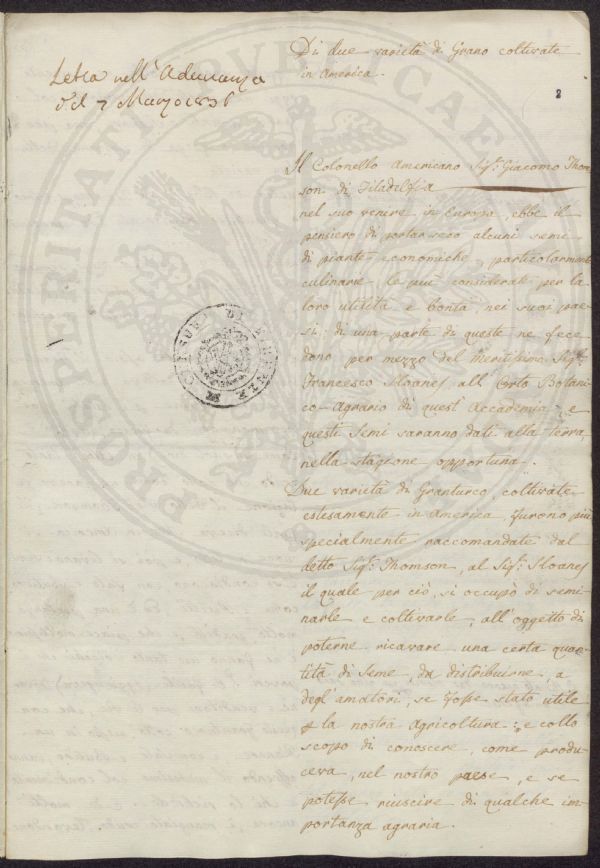 Letta nell'Adunanza
del 7 Marzo 1836
Di due varietà di Grano coltivate
in America.
2
Il Colonello Americano Sig.r Giacomo Thom
son di Filadelfia
nel suo venire in Europa, ebbe il
pensiero di portar seco alcuni semi
di piante economiche, particolarmente
culinarie, le più considerate per la
loro utilità e bontà nei suoi pae-
si: di una parte di queste ne fece
dono per mezzo del Meritissimo Sig.r
Francesco Sloanes all'Orto Botani-
co-Agrario di quest'Accademia; e
questi Semi saranno dati alla terra,
nella stagione opportuna.
Due varietà di Granturco, coltivate
estesamente in America, furono più
specialmente raccomandate dal
detto Sig.r Thomson, al Sig.r Sloanes
il quale per ciò, si occupò di semi-
narle e coltivarle, all'oggetto di
poterne ricavare una certa quan-
tità di Seme, da distribuirne a
degl'amatori, se fosse stato utile
p la nostra Agricoltura: e collo
scopo di conoscere, come produ-
ceva, nel nostro paese, e se
potesse riuscire di qualche im-
portanza agraria.
PROSPERITATI PVBLICAE